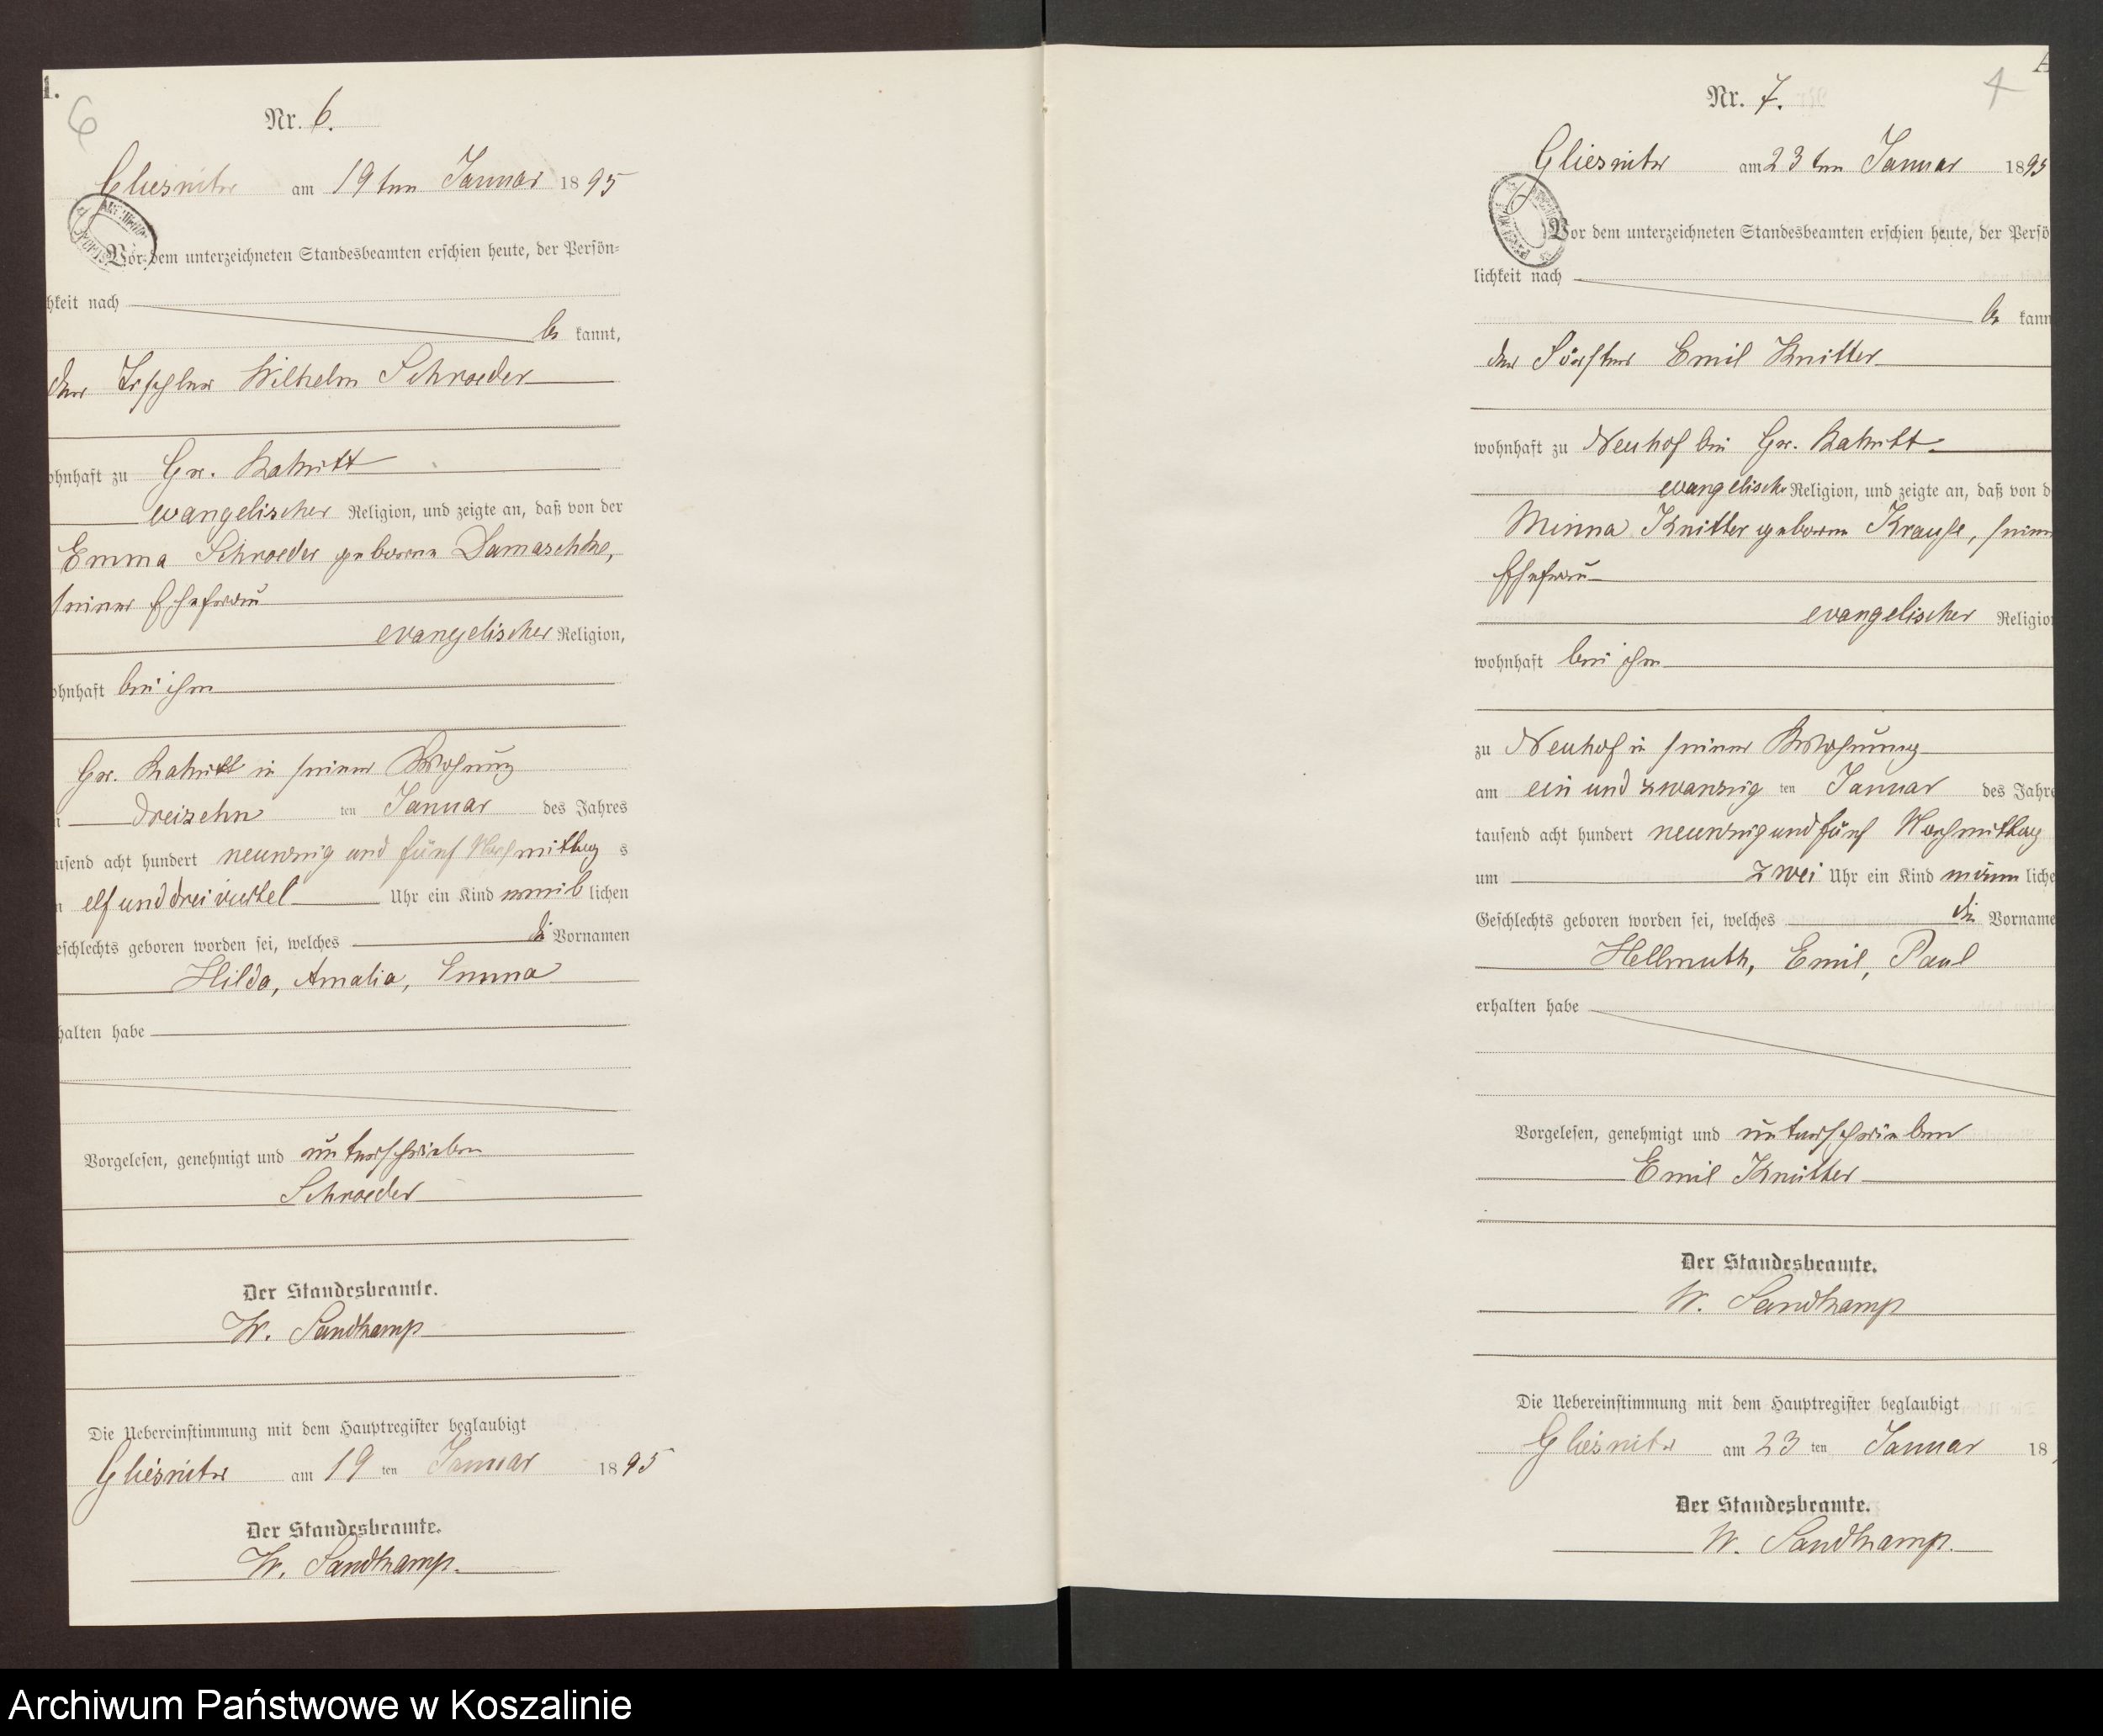 6
Nr. 6.
Gliesnitz am 19ten Januar 1895
Vor dem unterzeichneten Standesbeamten erschien heute, der Persön-
hkeit nach
be kannt,
der Tischler Wilhelm Schroeder
ohnhaft zu Gr. Katritt
evangelischer Religion, und zeigte an, daß von der
Emma Schroeder geborene Damaschke,
seiner Ehefrau
evangelischer Religion,
ohnhaft bei ihm
Gr. Katritt in seiner Wohnung
dreizehn ten Januar des Jahres
usend acht hundert neunzig und fünf Nachmittag s
elf und dreiviertel Uhr ein Kind weib lichen
eschlechts geboren worden sei, welches die Vornamen
Hilda, Amalia, Emma
halten habe
Vorgelesen, genehmigt und unterschrieben
Schroeder
Der Standesbeamte.
W. Sandkamp
Die Uebereinstimmung mit dem Hauptregister beglaubigt
Gliesnitz am 19 ten Januar 1895
Der Standesbeamte.
W. Sandkamp.
A
Nr. 7.
Gliesnitz am 23ten Januar 1895
Vor dem unterzeichneten Standesbeamten erschien heute, der Persö
lichkeit nach
be kann
der Förster Emil Knitter
wohnhaft zu Neuhof bei Gr. Katritt
evangelischer Religion, und zeigte an, daß von d
Minna Knitter geborene Krause, seiner
Ehefrau
evangelischer Religio
wohnhaft bei ihm
zu Neuhof in seiner Wohnung
am ein und zwanzig ten Januar des Jahre
tausend acht hundert neunzig und fünf Nachmittag
um zwei Uhr ein Kind männ liche
Geschlechts geboren worden sei, welches die Vorname
Hellmuth, Emil, Paul
erhalten habe
Vorgelesen, genehmigt und unterschrieben
Emil Knitter
Der Standesbeamte.
W. Sandkamp
Die Uebereinstimmung mit dem Hauptregister beglaubigt
Gliesnitz am 23 ten Januar 18
Der Standesbeamte.
W. Sandkamp.
Archiwum Państwowe w Koszalinie